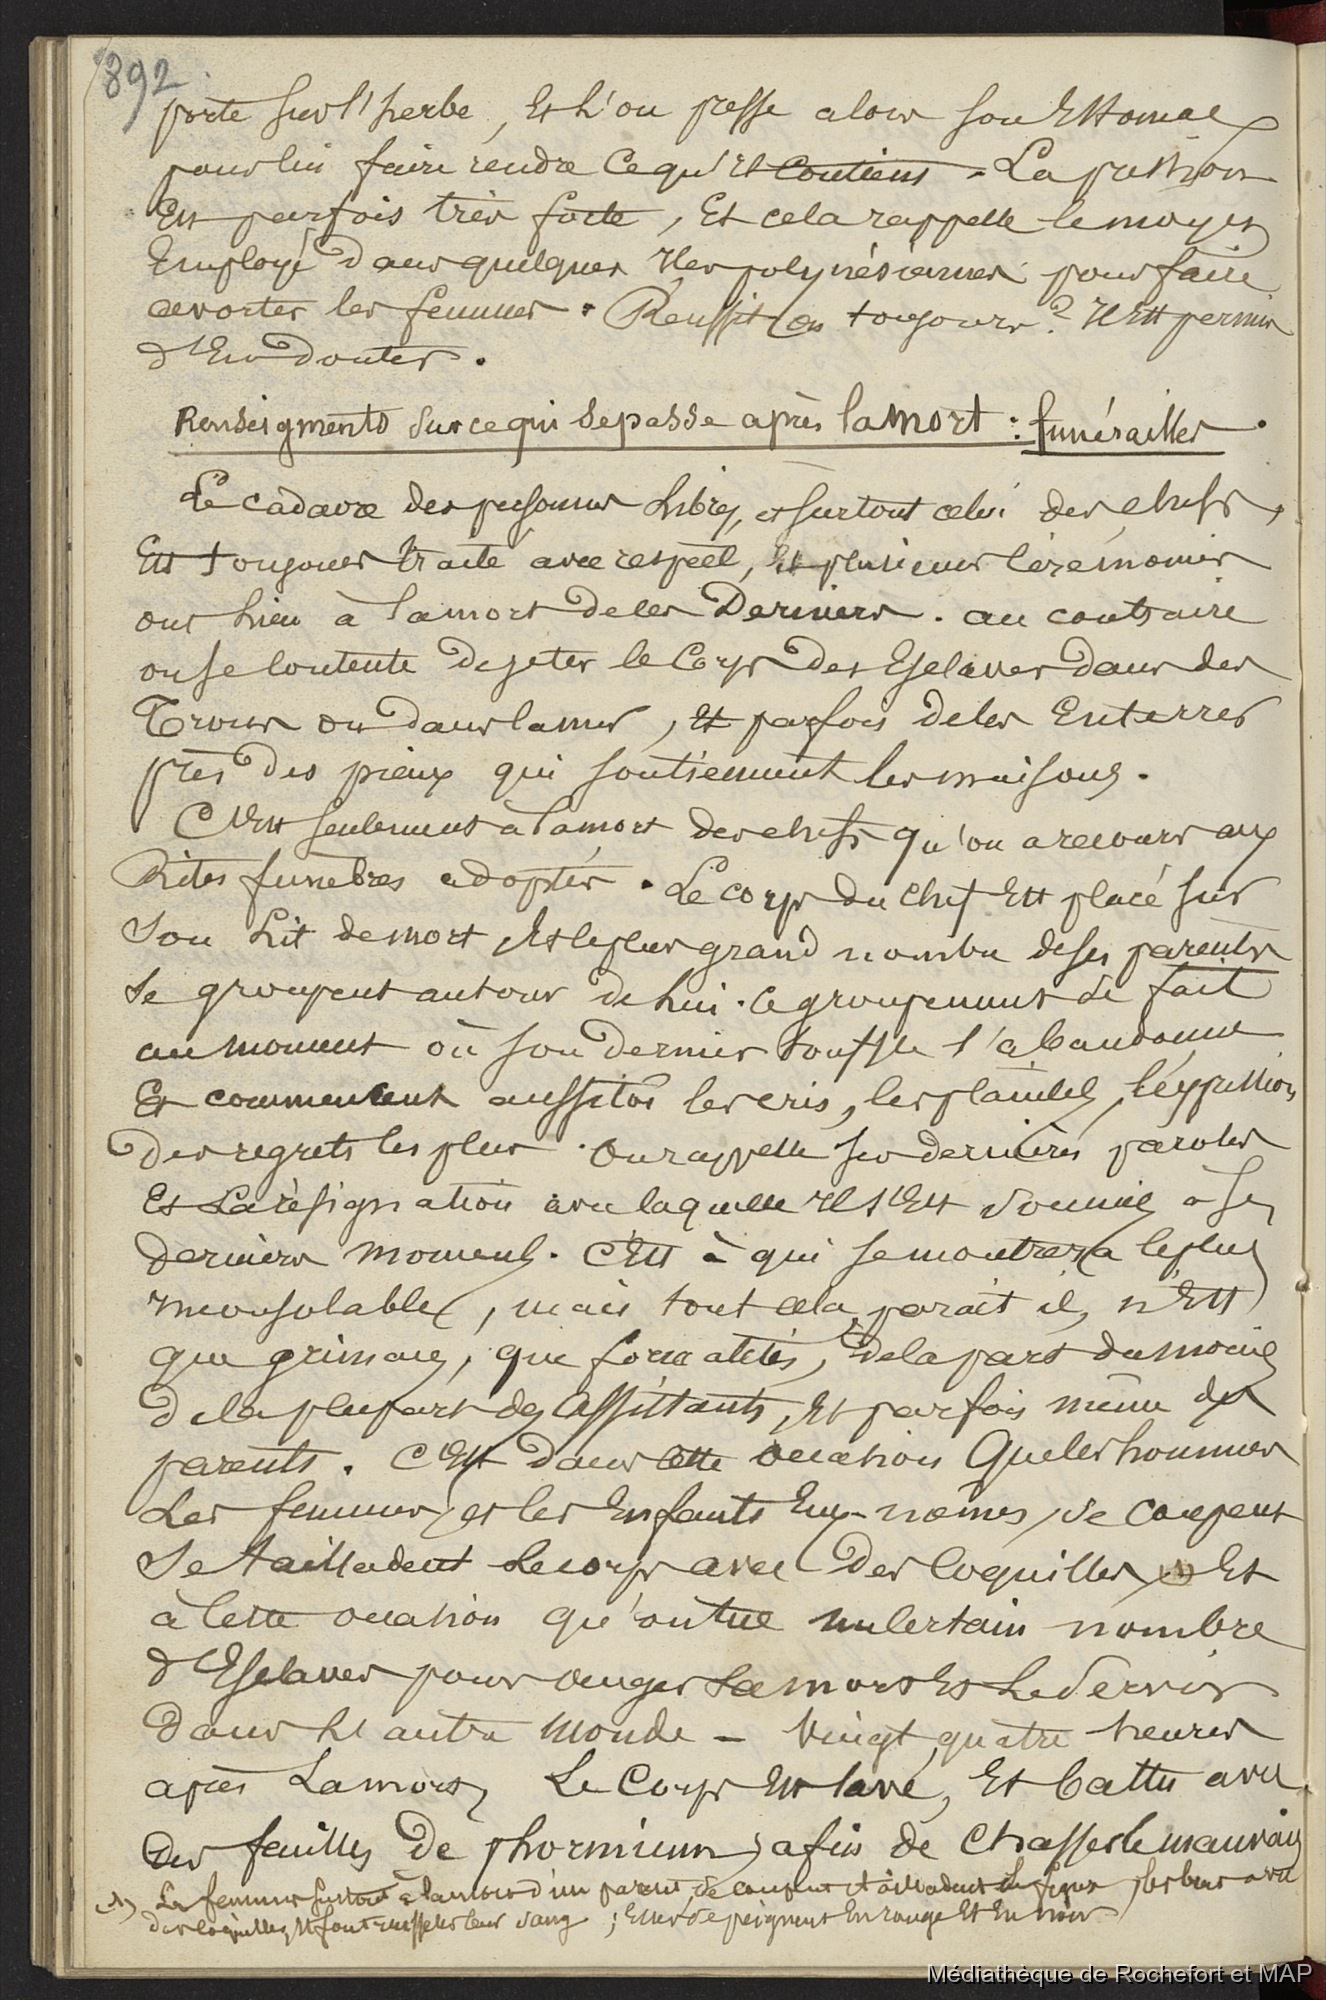 892
porte sur l'herbe, Et l'on presse alors son Estomac
pour lui faire rendre ce qu'il contient - La pression
Est parfois très forte, Et cela rappelle le moyen
Employé dans quelques Iles polynésiennes pour faire
avorter les femmes. Réussit on toujours? Il Est permis
d'En douter.
Renseigments sur ce qui se passe après la mort : funérailles.
Le cadavre des personnes Libres, et surtout celui des chefs,
Est toujours traité avec respect, Et plusieurs Cérémonies
ont Lieu à la mort de ces Derniers. au contraire
on se contente de jeter le Corps des Esclaves dans des
Trous ou dans la mer, Et parfois de les Enterrer
près des pieux qui soutiennent les maisons.
C'Est seulement à la mort des chefs qu'on a recours aux
Rites funèbres adoptés. Le corps du chef Est placé sur
son Lit de mort Et le plus grand nombre de ses parents
se groupent autour de Lui. Ce groupement se fait
au moment où son dernier souffle l'abandonne
Et commencent aussitôt les cris, les plaintes, l'expression
des regrets les plus. On rappelle ses dernières paroles
Et La résignation avec laquelle Il s'Est soumis à ses
derniers moments. C'Est à qui se montrera le plus
inconsolable, mais tout cela, parait il, n'Est
que grimaces, que formalités, de la part du moins
de la plupart des assistants, Et parfois même des
parents. C'Est dans cette occasion Que les hommes
Les femmes, et les Enfants Eux-mêmes, se coupent
se tailladent Le corps avec des Coquilles (1) Et
à cette occasion qu'on tue un certain nombre
d'Esclaves pour venger sa mort Et Le servir
dans L'autre monde - Vingt quatre heures
après La mort, Le Corps Est lavé, Et battu avec
des feuilles de phormium, afin de Chasser le mauvais
(1) Les femmes surtout à la mort d'un parent se coupent et tailladent la figure, les bras avec
des coquilles, Et font ruisseler leur sang ; Elles se peignent En rouge Et En noir
Médiathèque de Rochefort et MAP